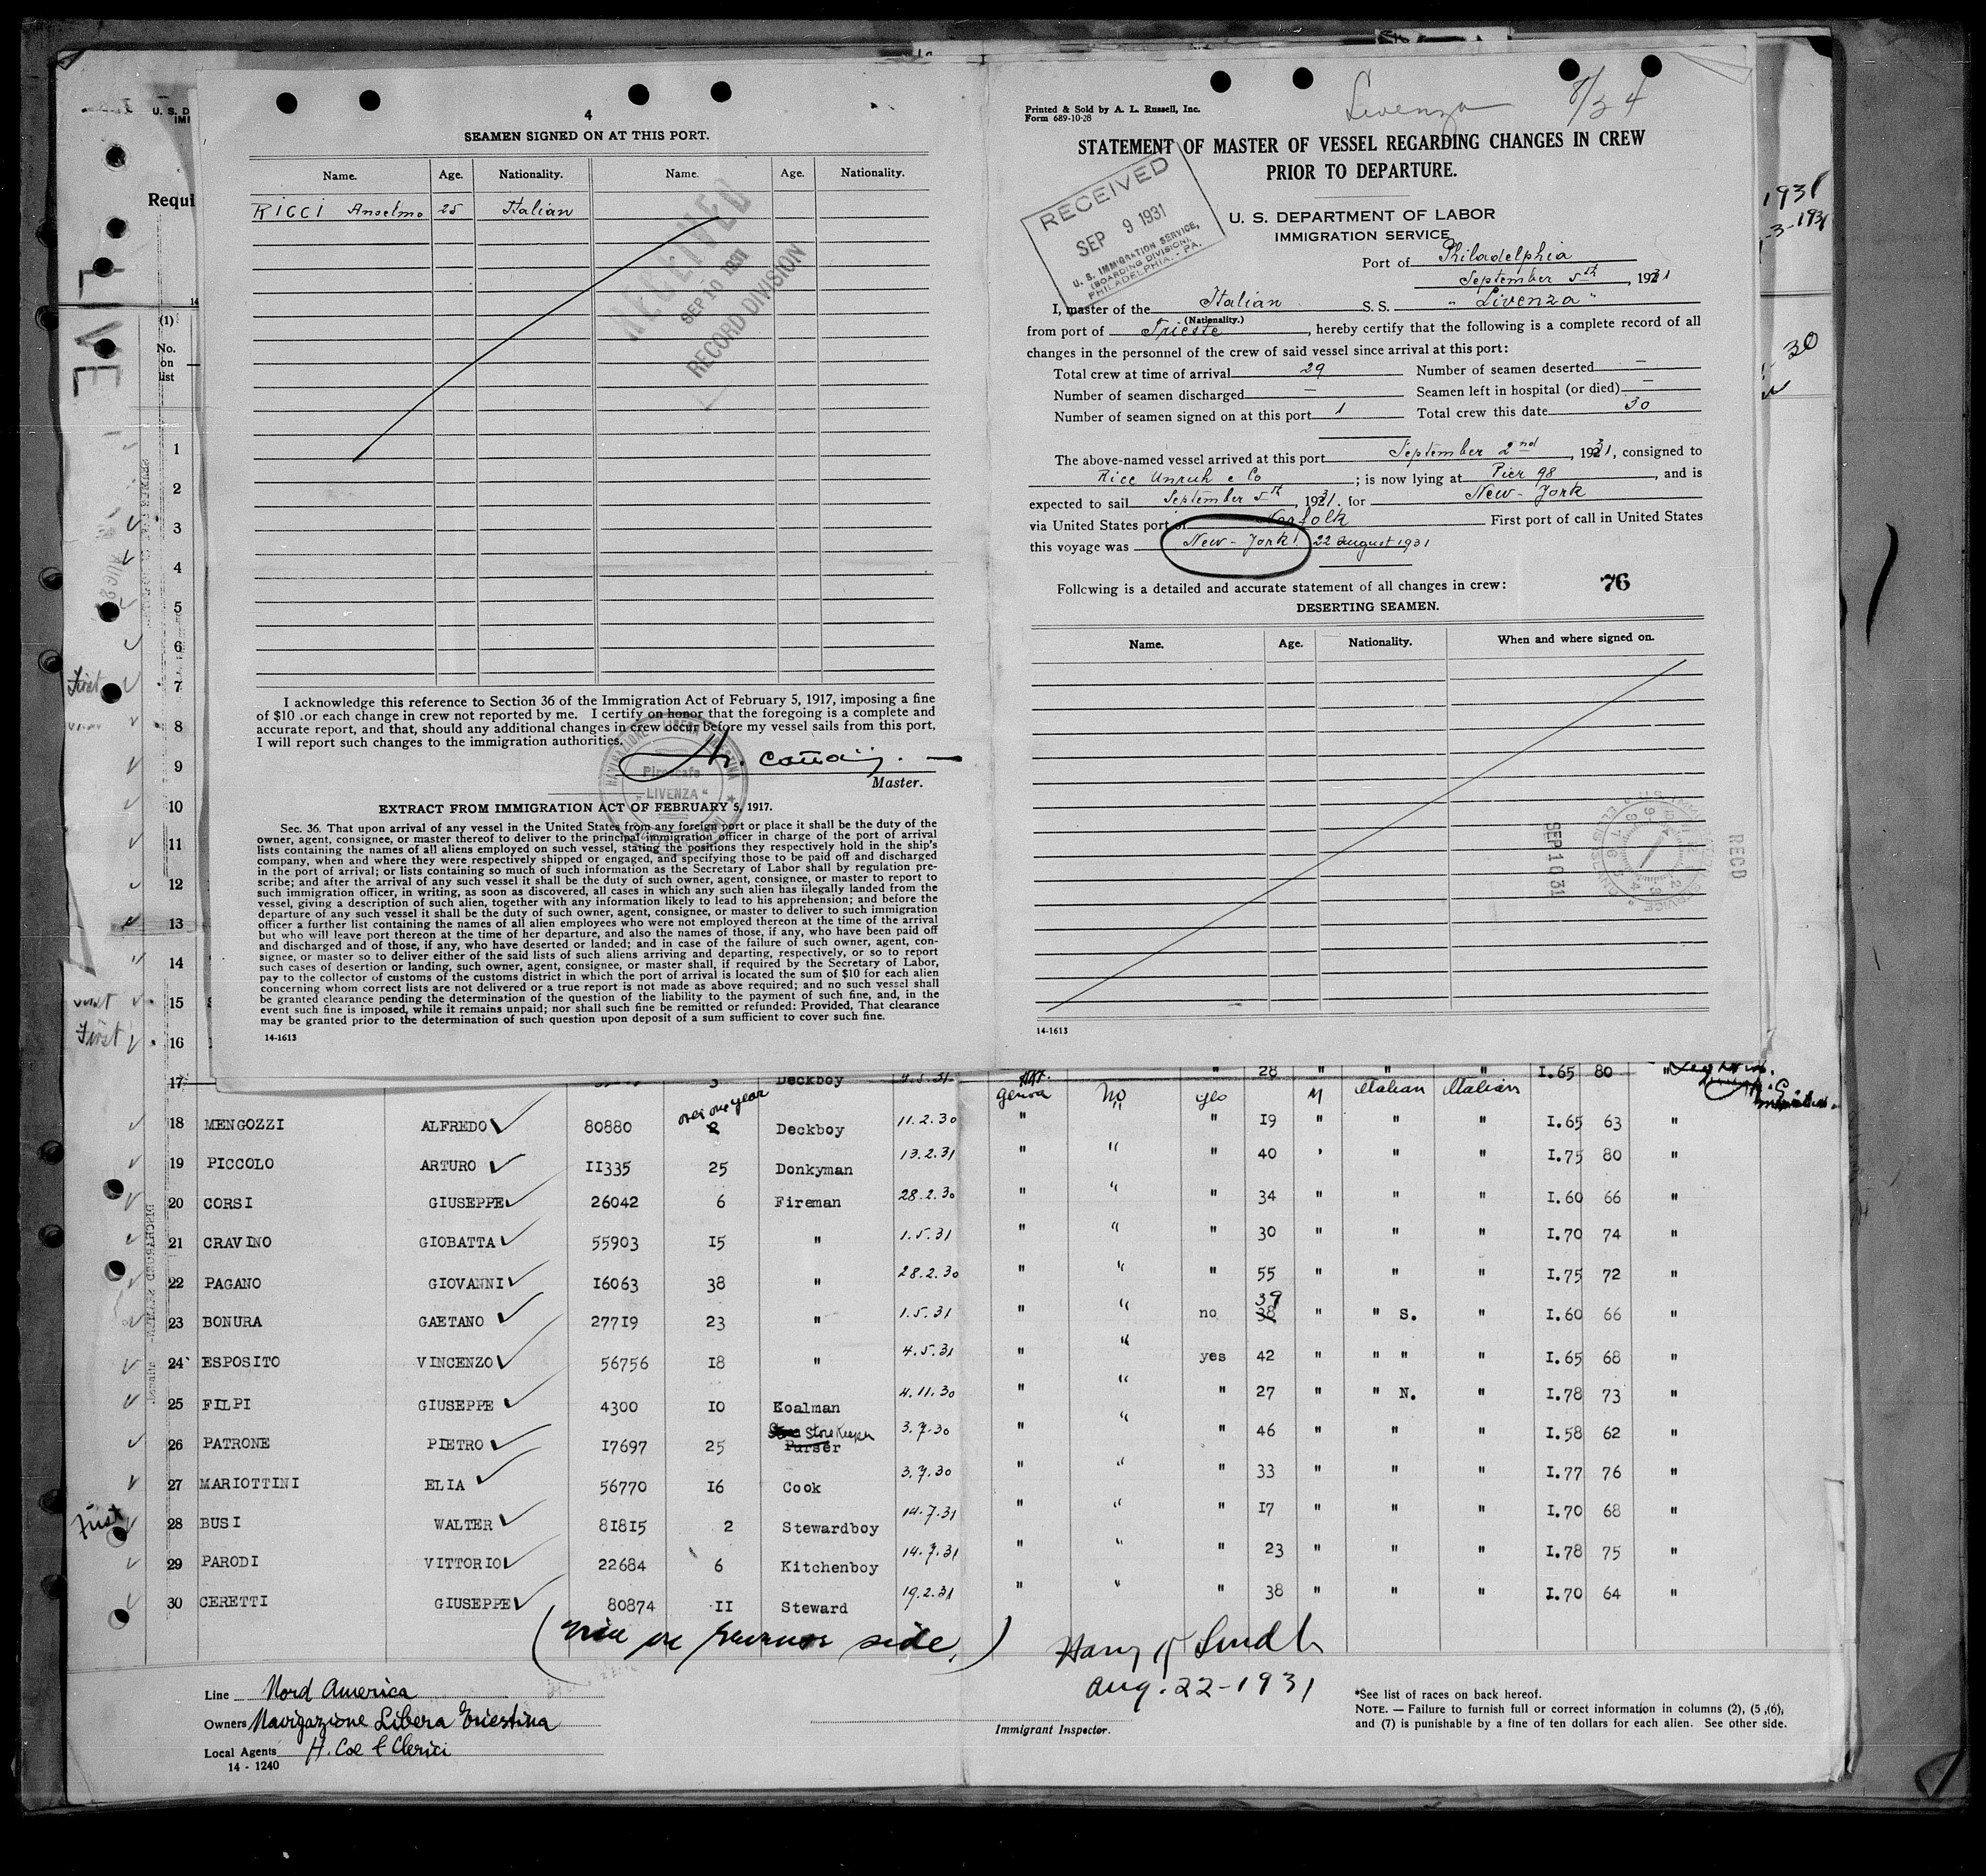 4
SEAMEN SIGNED ON AT THIS PORT.
Name. Age. Nationality. Name. Age. Nationality.
RICCI Anselmo 25 Italian
RECEIVED
SEP 10 1931
RECORD DIVISION
I acknowledge this reference to Section 36 of the Immigration Act of February 5, 1917, imposing a fine
of $10 .or each change in crew not reported by me. I certify on honor that the foregoing is a complete and
accurate report, and that, should any additional changes in crew occur before my vessel sails from this port,
I will report such changes to the immigration authorities.
Master.
NAVIGAZIONE LIBERA TRIESTINA
Piroscafo
"LIVENZA"
EXTRACT FROM IMMIGRATION ACT OF FEBRUARY 5, 1917.
Sec. 36. That upon arrival of any vessel in the United States from any foreign port or place it shall be the duty of the
owner, agent, consignee, or master thereof to deliver to the principal immigration officer in charge of the port of arrival
lists containing the names of all aliens employed on such vessel, stating the positions they respectively hold in the ship's
company, when and where they were respectively shipped or engaged, and specifying those to be paid off and discharged
in the port of arrival; or lists containing so much of such information as the Secretary of Labor shall by regulation pre-
scribe; and after the arrival of any such vessel it shall be the duty of such owner, agent, consignee, or master to report to
such immigration officer, in writing, as soon as discovered, all cases in which any such alien has illegally landed from the
vessel, giving a description of such alien, together with any information likely to lead to his apprehension; and before the
departure of any such vessel it shall be the duty of such owner, agent, consignee, or master to deliver to such immigration
officer a further list containing the names of all alien employees who were not employed thereon at the time of the arrival
but who will leave port thereon at the time of her departure, and also the names of those, if any, who have been paid off
and discharged and of those, if any, who have deserted or landed; and in case of the failure of such owner, agent, con-
signee, or master so to deliver either of the said lists of such aliens arriving and departing, respectively, or so to report
such cases of desertion or landing, such owner, agent, consignee, or master shall, if required by the Secretary of Labor,
pay to the collector of customs of the customs district in which the port of arrival is located the sum of $10 for each alien
concerning whom correct lists are not delivered or a true report is not made as above required; and no such vessel shall
be granted clearance pending the determination of the question of the liability to the payment of such fine, and, in the
event such fine is imposed, while it remains unpaid; nor shall such fine be remitted or refunded: Provided, That clearance
may be granted prior to the determination of such question upon deposit of a sum sufficient to cover such fine.
14-1613
Livenza 8/34
Printed & Sold by A. L. Russell, Inc.
Form 689-10-28
STATEMENT OF MASTER OF VESSEL REGARDING CHANGES IN CREW
PRIOR TO DEPARTURE.
RECEIVED
SEP 9 1931
U. S. IMMIGRATION SERVICE,
(BOARDING DIVISION),
PHILADELPHIA, - PA.
U. S. DEPARTMENT OF LABOR
IMMIGRATION SERVICE
Port of Philadelphia
September 5th, 1931
I, master of the Italian S. S. "Livenza"
(Nationality.)
from port of Trieste, hereby certify that the following is a complete record of all
changes in the personnel of the crew of said vessel since arrival at this port:
Total crew at time of arrival 29 Number of seamen deserted —
Number of seamen discharged — Seamen left in hospital (or died) —
Number of seamen signed on at this port 1 Total crew this date 30
The above-named vessel arrived at this port September 2nd, 1931, consigned to
Rice Unruh e Co; is now lying at Pier 98, and is
expected to sail September 5th, 1931, for New-York
via United States port of Norfolk First port of call in United States
this voyage was New-York! 22 august 1931
Following is a detailed and accurate statement of all changes in crew: 76
DESERTING SEAMEN.
Name. Age. Nationality. When and where signed on.
SEP 10 31
RECD
14-1613
U. S. D
IMI
Requi
14
(1)
No.
on
list
1
2
3
4
5
6
First 7
8
9
10
11
12
13
14
15
First 16
1931
-3-1931
30
17 Deckboy 4.5.31 " 28 " " " I.65 80 "
Genova no yes M Italian Italian
over one year
18 MENGOZZI ALFREDO 80880 2 Deckboy 11.2.30 " " " 19 " " " I.65 63 "
19 PICCOLO ARTURO 11335 25 Donkyman 13.2.31 " " " 40 " " " I.75 80 "
20 CORSI GIUSEPPE 26042 6 Fireman 28.2.30 " " " 34 " " " I.60 66 "
21 CRAVINO GIOBATTA 55903 15 " 1.5.31 " " " 30 " " " I.70 74 "
22 PAGANO GIOVANNI 16063 38 " 28.2.30 " " " 55 " " " I.75 72 "
39
23 BONURA GAETANO 27719 23 " 1.5.31 " " no 38 " " S. " I.60 66 "
24 ESPOSITO VINCENZO 56756 18 " 4.5.31 " " yes 42 " " " " I.65 68 "
25 FILPI GIUSEPPE 4300 10 Koalman 4.11.30 " " " 27 " " N. " I.78 73 "
Store Keeper
26 PATRONE PIETRO 17697 25 Purser 3.7.30 " " " 46 " " " I.58 62 "
27 MARIOTTINI ELIA 56770 16 Cook 3.7.30 " " " 33 " " " I.77 76 "
First 28 BUSI WALTER 81815 2 Stewardboy 14.7.31 " " " 17 " " " I.70 68 "
29 PARODI VITTORIO 22684 6 Kitchenboy 14.7.31 " " " 23 " " " I.78 75 "
30 CERETTI GIUSEPPE 80874 11 Steward 19.2.31 " " " 38 " " " I.70 64 "
side.)
Aug. 22-1931
Immigrant Inspector.
Line Nord America
Owners Navigazione Libera Triestina
Local Agents H. Coe & Clerici
14 - 1240
*See list of races on back hereof.
NOTE. — Failure to furnish full or correct information in columns (2), (5,(6),
and (7) is punishable by a fine of ten dollars for each alien. See other side.